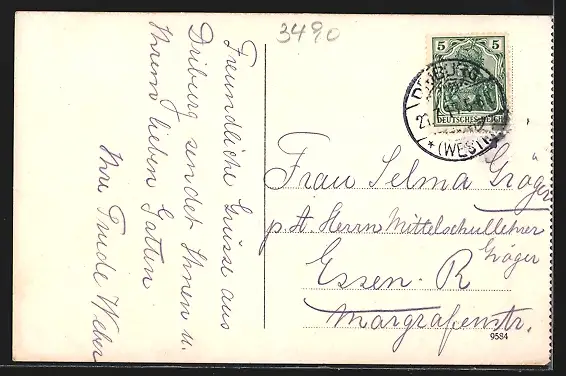 3490
Freundliche Grüsse aus
Driburg sendet Ihnen u.
Ihrem lieben Gatten
Ihre Trude Weber
5 5
DEUTSCHES REICH
DRIBURG
* (WESTF.)
Frau Selma Gröger
p. A. Herrn Mittelschullehrer
Gröger
Essen-R
Margrafenstr.
9584